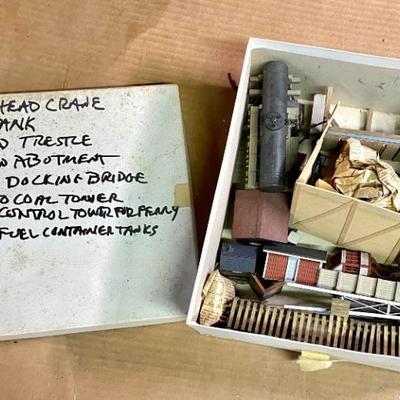 HEAD CRANE
ANK
D TRESTLE
N ABOTMENT
DOCKING BRIDGE
O COAL TOWER
CONTROL TOWER FOR FERRY
FUEL CONTAINER TANKS